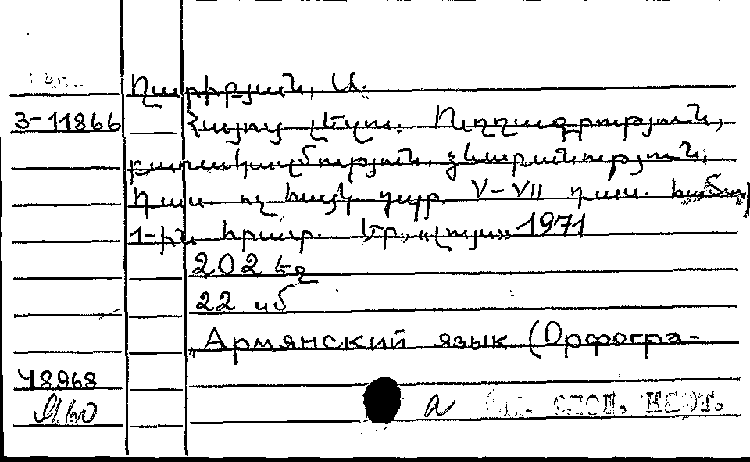 Ղարիբյան, Ա.
3-11866 Հայոց լեզու. Ուղղագրություն,
բառակազմություն, ձևաբանություն:
Դաս. ոչ հայկ դպր. V-VII դաս. համար
1-ին հրատ. Եր., «Լույս» 1971
202 էջ
22 սմ
„Армянский язык (Орфогра-
48968
а